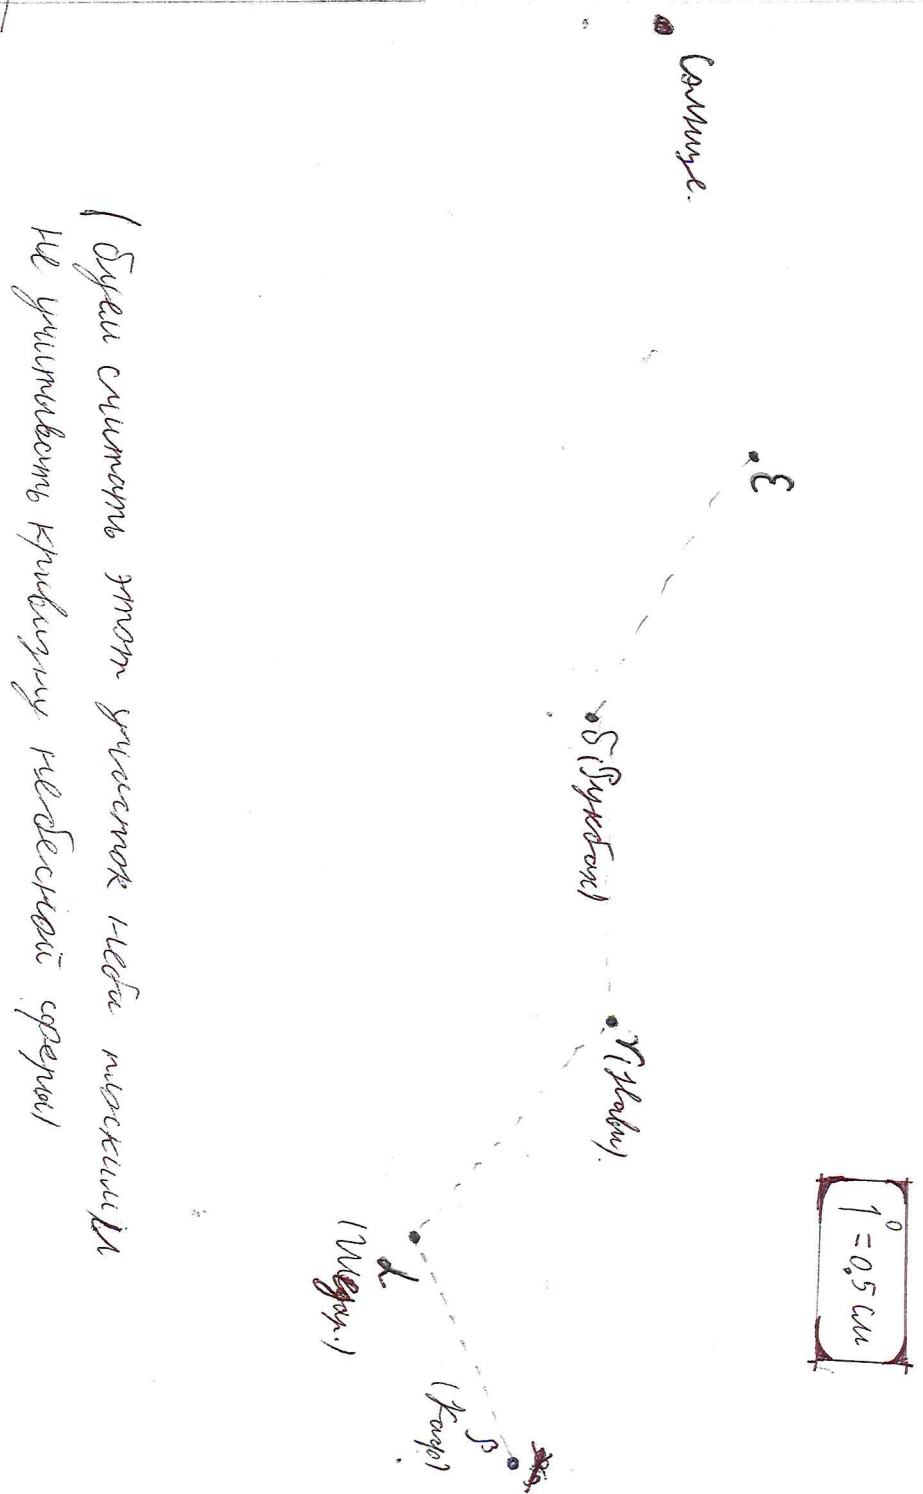 1° = 0,5 см
Солнце.
ε
δ (Рукбах)
γ (Нави).
α
(Шедар.)
β
(Каф)
(будем считать этот участок неба плоским) и
не учитывать кривизну небесной сферы)